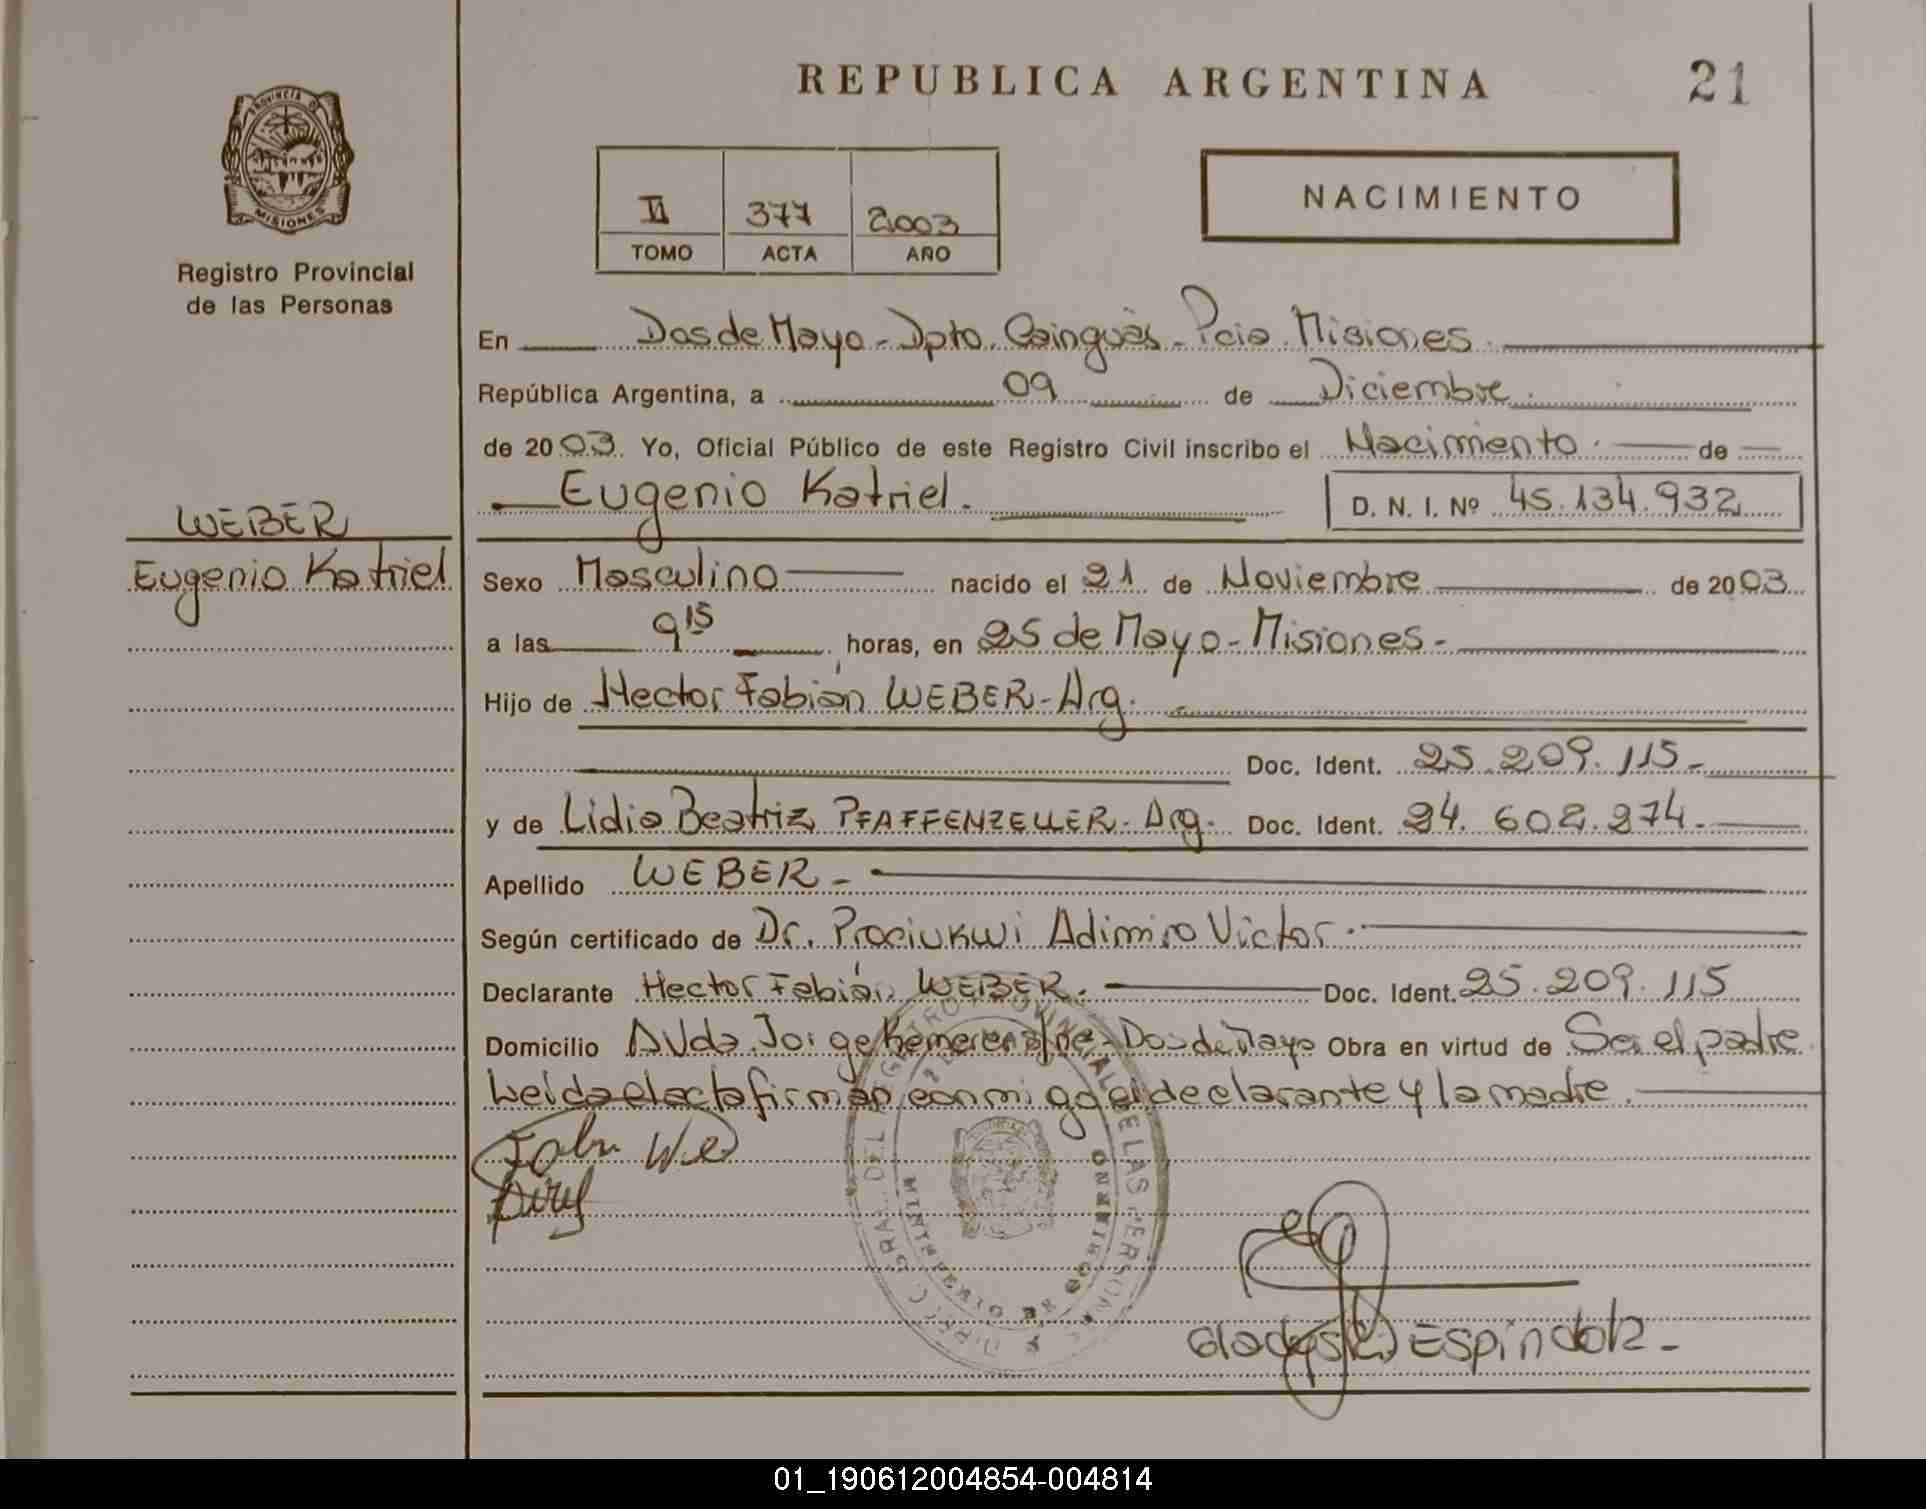 REPUBLICA ARGENTINA
21
PROVINCIA D
MISIONES
Registro Provincial
de las Personas
II 377 2003
TOMO ACTA AÑO
NACIMIENTO
En Dos de Mayo - Dpto. Cainguàs - Pcia Misiones.
República Argentina, a 09 de Diciembre.
de 2003. Yo, Oficial Público de este Registro Civil inscribo el Nacimiento de
Eugenio Katriel. D. N. I. Nº 45.134.932
WEBER
Eugenio Katriel
Sexo Masculino nacido el 21 de Noviembre de 2003
a las 9 15 horas, en 25 de Mayo - Misiones -
Hijo de Hector Fabián WEBER - Arg.
Doc. Ident. 25.209.115 -
y de Lidia Beatriz PFAFFENZELLER - Arg. Doc. Ident. 24.602.274 -
Apellido WEBER -
Según certificado de Dr. Prociukwi Adimiro Victor.
Declarante Hector Fabián WEBER. Doc. Ident. 25.209.115
Domicilio AVda Jorge - Dos de Mayo Obra en virtud de Ser el padre
Leida el acta firman conmigo el declarante y la madre.
Gladys Espíndola -
01_190612004854-004814